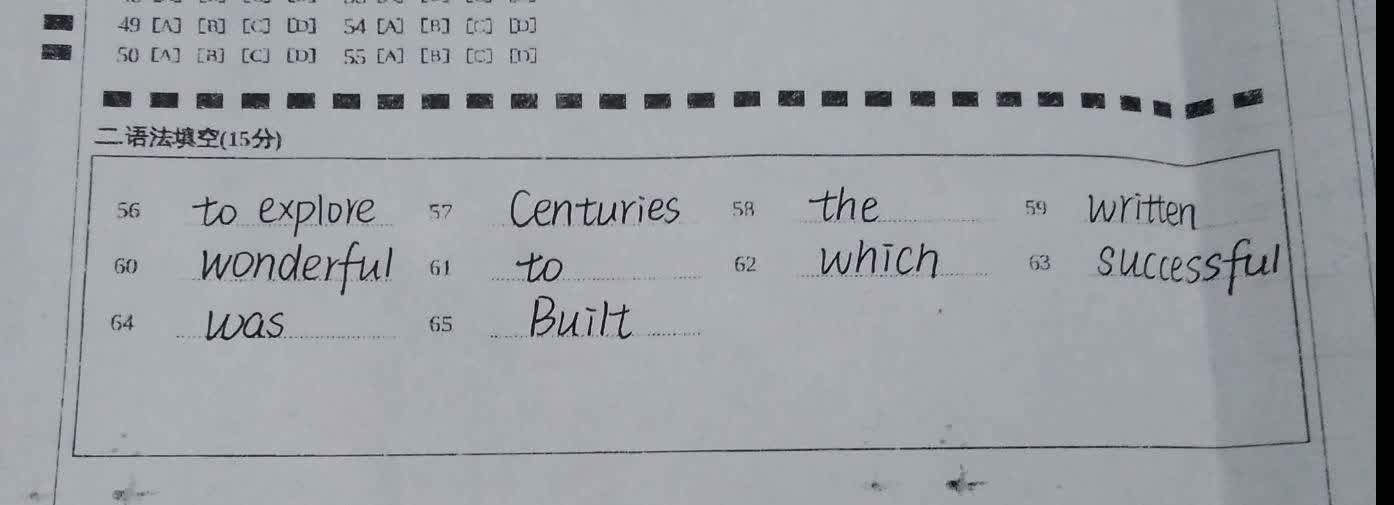 49 [A] [B] [C] [D] 54 [A] [B] [C] [D]
50 [A] [B] [C] [D] 55 [A] [B] [C] [D]
二.语法填空(15分)
56 to explore 57 Centuries 58 the 59 written
60 wonderful 61 to 62 which 63 successful
64 was 65 Built